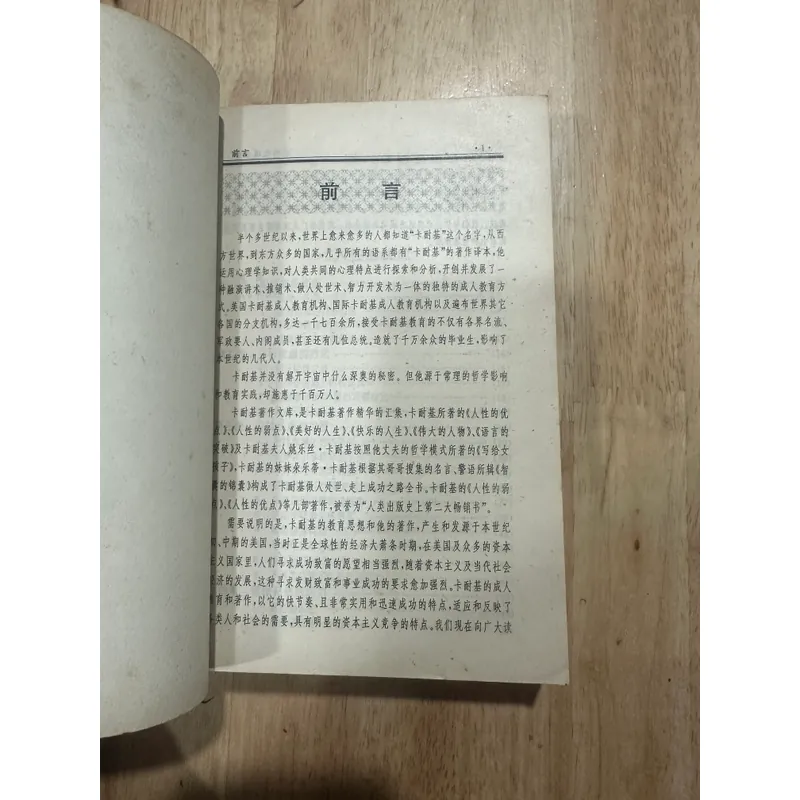 前言 ·1·
前 言
半个多世纪以来,世界上愈来愈多的人都知道“卡耐基”这个名字,从西
方世界,到东方众多的国家,几乎所有的语系都有“卡耐基”的著作译本,他
运用心理学知识,对人类共同的心理特点进行探索和分析,开创并发展了一
种融演讲术、推销术、做人处世术、智力开发术为一体的独特的成人教育方
式。美国卡耐基成人教育机构、国际卡耐基成人教育机构以及遍布世界其它
各国的分支机构,多达一千七百余所,接受卡耐基教育的不仅有各界名流、
军政要人、内阁成员,甚至还有几位总统。造就了千万余众的毕业生,影响了
本世纪的几代人。
卡耐基并没有解开宇宙中什么深奥的秘密。但他源于常理的哲学影响
和教育实践,却施惠于千百万人。
卡耐基著作文库,是卡耐基著作精华的汇集,卡耐基所著的《人性的优
点》、《人性的弱点》、《美好的人生》、《快乐的人生》、《伟大的人物》、《语言的
突破》及卡耐基夫人姚乐丝·卡耐基按照他丈夫的哲学模式所著的《写给女
孩子》,卡耐基的妹妹朵乐蒂·卡耐基根据其哥哥搜集的名言、警语所辑《智
慧的锦囊》构成了卡耐基做人处世、走上成功之路全书。卡耐基的《人性的弱
点》、《人性的优点》等几部著作,被誉为“人类出版史上第二大畅销书”。
需要说明的是,卡耐基的教育思想和他的著作,产生和发源于本世纪
初、中期的美国,当时正是全球性的经济大萧条时期,在美国及众多的资本
主义国家里,人们寻求成功致富的愿望相当强烈,随着资本主义及当代社会
经济的发展,这种寻求发财致富和事业成功的要求愈加强烈。卡耐基的成人
教育和著作,以它的快节奏、且非常实用和迅速成功的特点,适应和反映了
各类人和社会的需要,具有明星的资本主义竞争的特点。我们现在向广大读